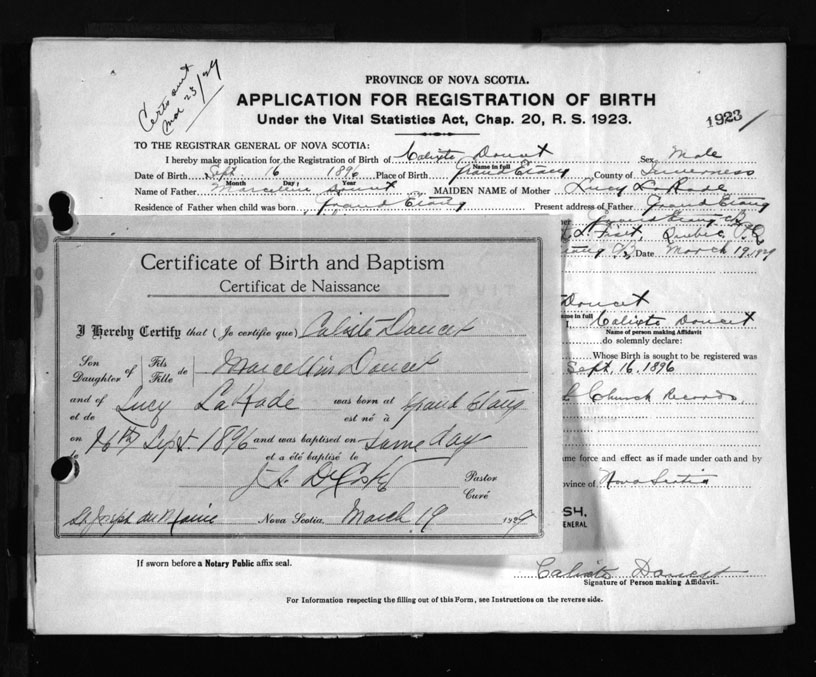 Certs sent
Mar 23/29
PROVINCE OF NOVA SCOTIA.
APPLICATION FOR REGISTRATION OF BIRTH
Under the Vital Statistics Act, Chap. 20, R. S. 1923.
1923/
TO THE REGISTRAR GENERAL OF NOVA SCOTIA:
I hereby make application for the Registration of Birth of Calixte Doucet Sex Male
Name in full
Date of Birth Sept. 16 1896 Place of Birth Grand Etang County of Inverness
Month Day; Year
Name of Father Marcelin Doucet MAIDEN NAME of Mother Lucy LaKade
Residence of Father when child was born Grand Etang Present address of Father Grand Etang
Grand Etang C.B.
Quebec P.Q.
Date March 19
Doucet
me in full
Calixte Doucet
Name of person making Affidavit
do solemnly declare:
Whose Birth is sought to be registered was
Sept. 16, 1896
Church Records
me force and effect as if made under oath and by
ovince of Nova Scotia
54,
GENERAL
Certificate of Birth and Baptism
Certificat de Naissance
I Hereby Certify that (Je certifie que) Calixte Doucet
Son Daughter of Fils Fille de Marcellin Doucet
and of Lucy LaKade was born at Grand Etang
et de est né à
on 16th Sept. 1896 and was baptised on same day
le et a été baptisé le
Pastor
Curé
St Joseph du Moine Nova Scotia, March 19 1929
If sworn before a Notary Public affix seal.
Calixte Doucet
Signature of Person making Affidavit.
For Information respecting the filling out of this Form, see Instructions on the reverse side.